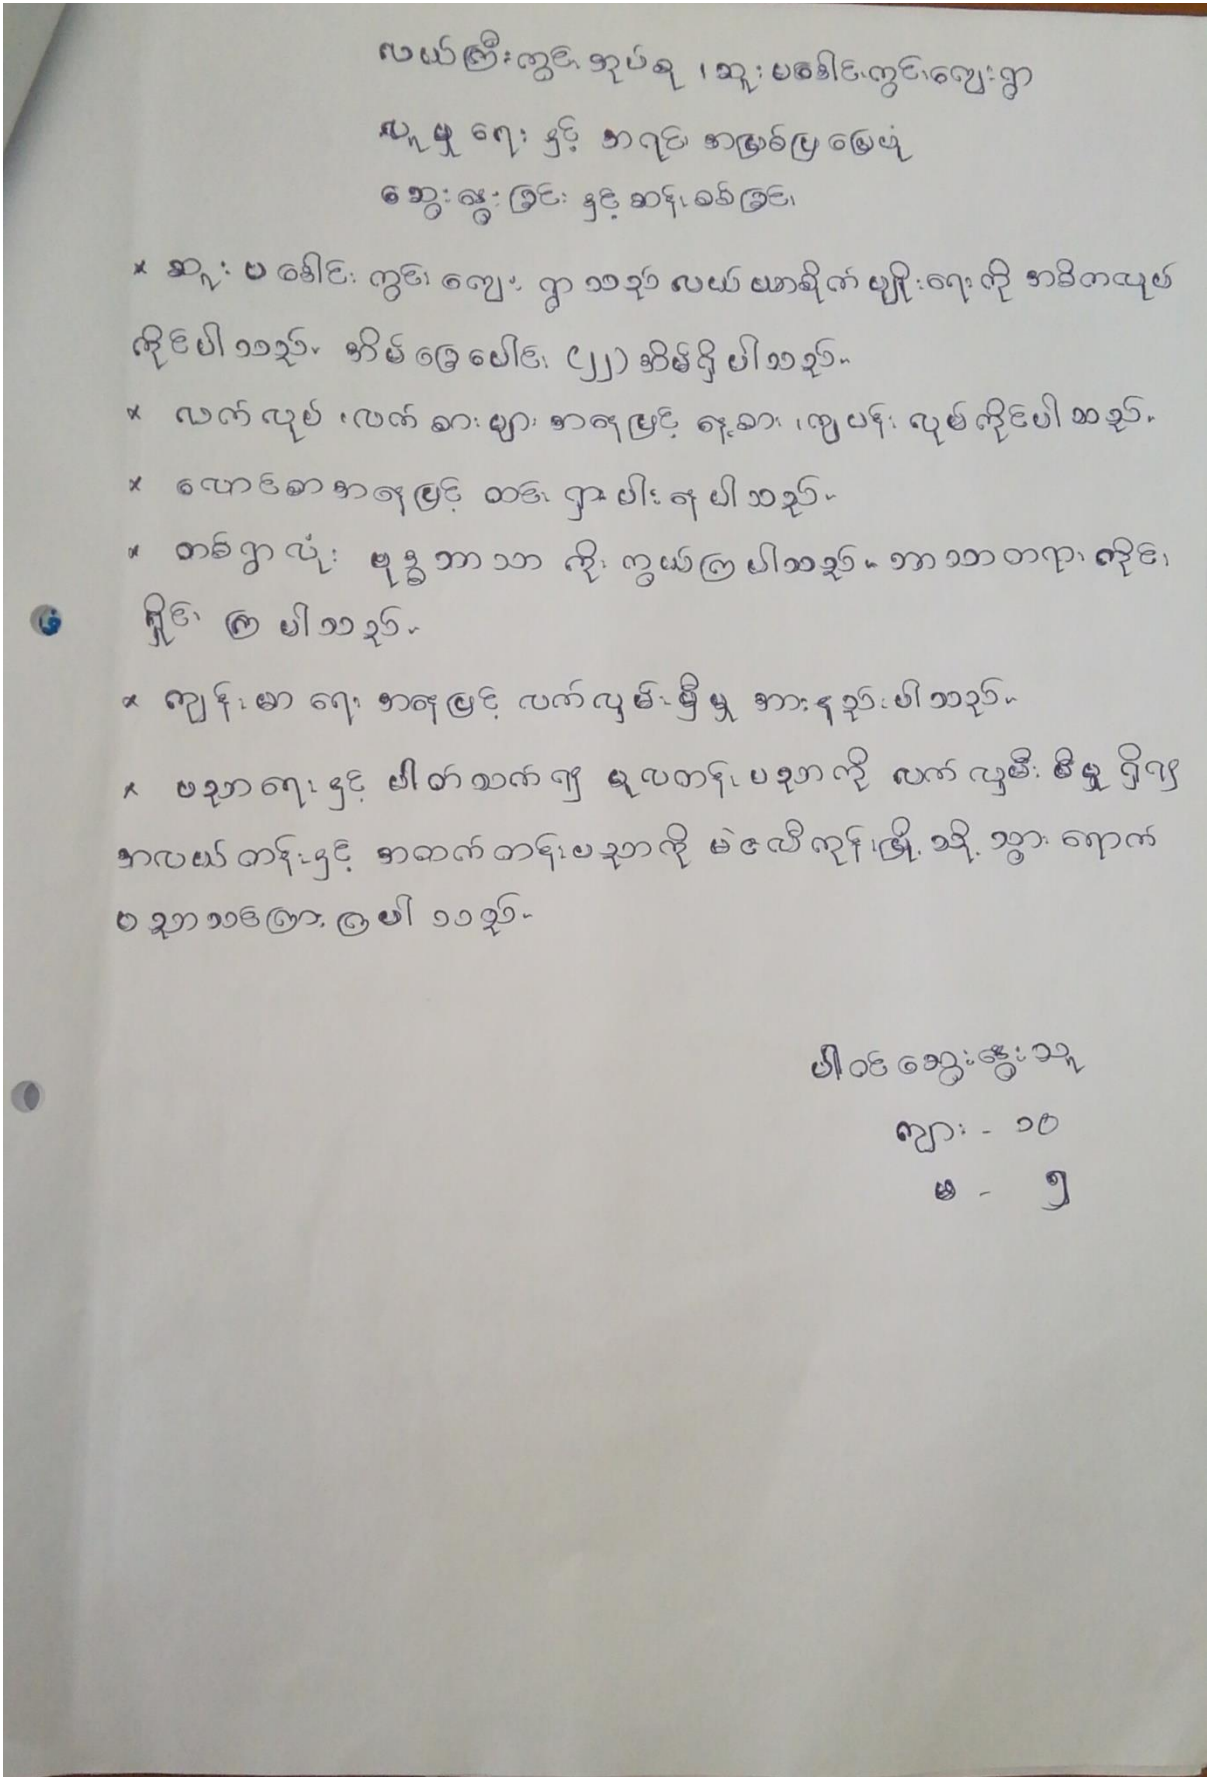 လယ်ကြီးကွင်းအုပ်စု ၊ ဆူးပခေါင်းကွင်းကျေးရွာ
လူမှုရေး နှင့် အရင်းအမြစ်ပြမြေပုံ
ဆွေးနွေးခြင်း နှင့်ဆန်းစစ်ခြင်း
* ဆူးပခေါင်းကွင်းကျေးရွာသည် လယ်ယာစိုက်ပျိုးရေးကို အဓိကလုပ်
ကိုင်ပါသည်။ အိမ်ခြေပေါင်း (၂၂) အိမ်ရှိပါသည်။
* လက်လုပ် ၊ လက်စားများ အနေဖြင့် နေ့စား ၊ ကျပန်း လုပ်ကိုင်ပါသည်။
* လောင်စာအနေဖြင့် ထင်းရှားပါးနေပါသည်။
* တစ်ရွာလုံး ဗုဒ္ဓဘာသာ ကိုးကွယ်ကြပါသည်။ ဘာသာတရားကိုင်း
ရှိုင်းကြပါသည်။
* ကျန်းမာရေး အနေဖြင့် လက်လှမ်းမှီမှု အားနည်းပါသည်။
* ပညာရေးနှင့် ပါတ်သက်၍ မူလတန်းပညာကို လက်လှမ်းမီမှုရှိ၍
အလယ်တန်းနှင့် အထက်တန်းပညာကို မဲဇလီကုန်းမြို့သို့ သွားရောက်
ပညာသင်ကြားကြပါသည်။
ပါဝင်ဆွေးနွေးသူ
ကျား - ၁၀
မ - ၅